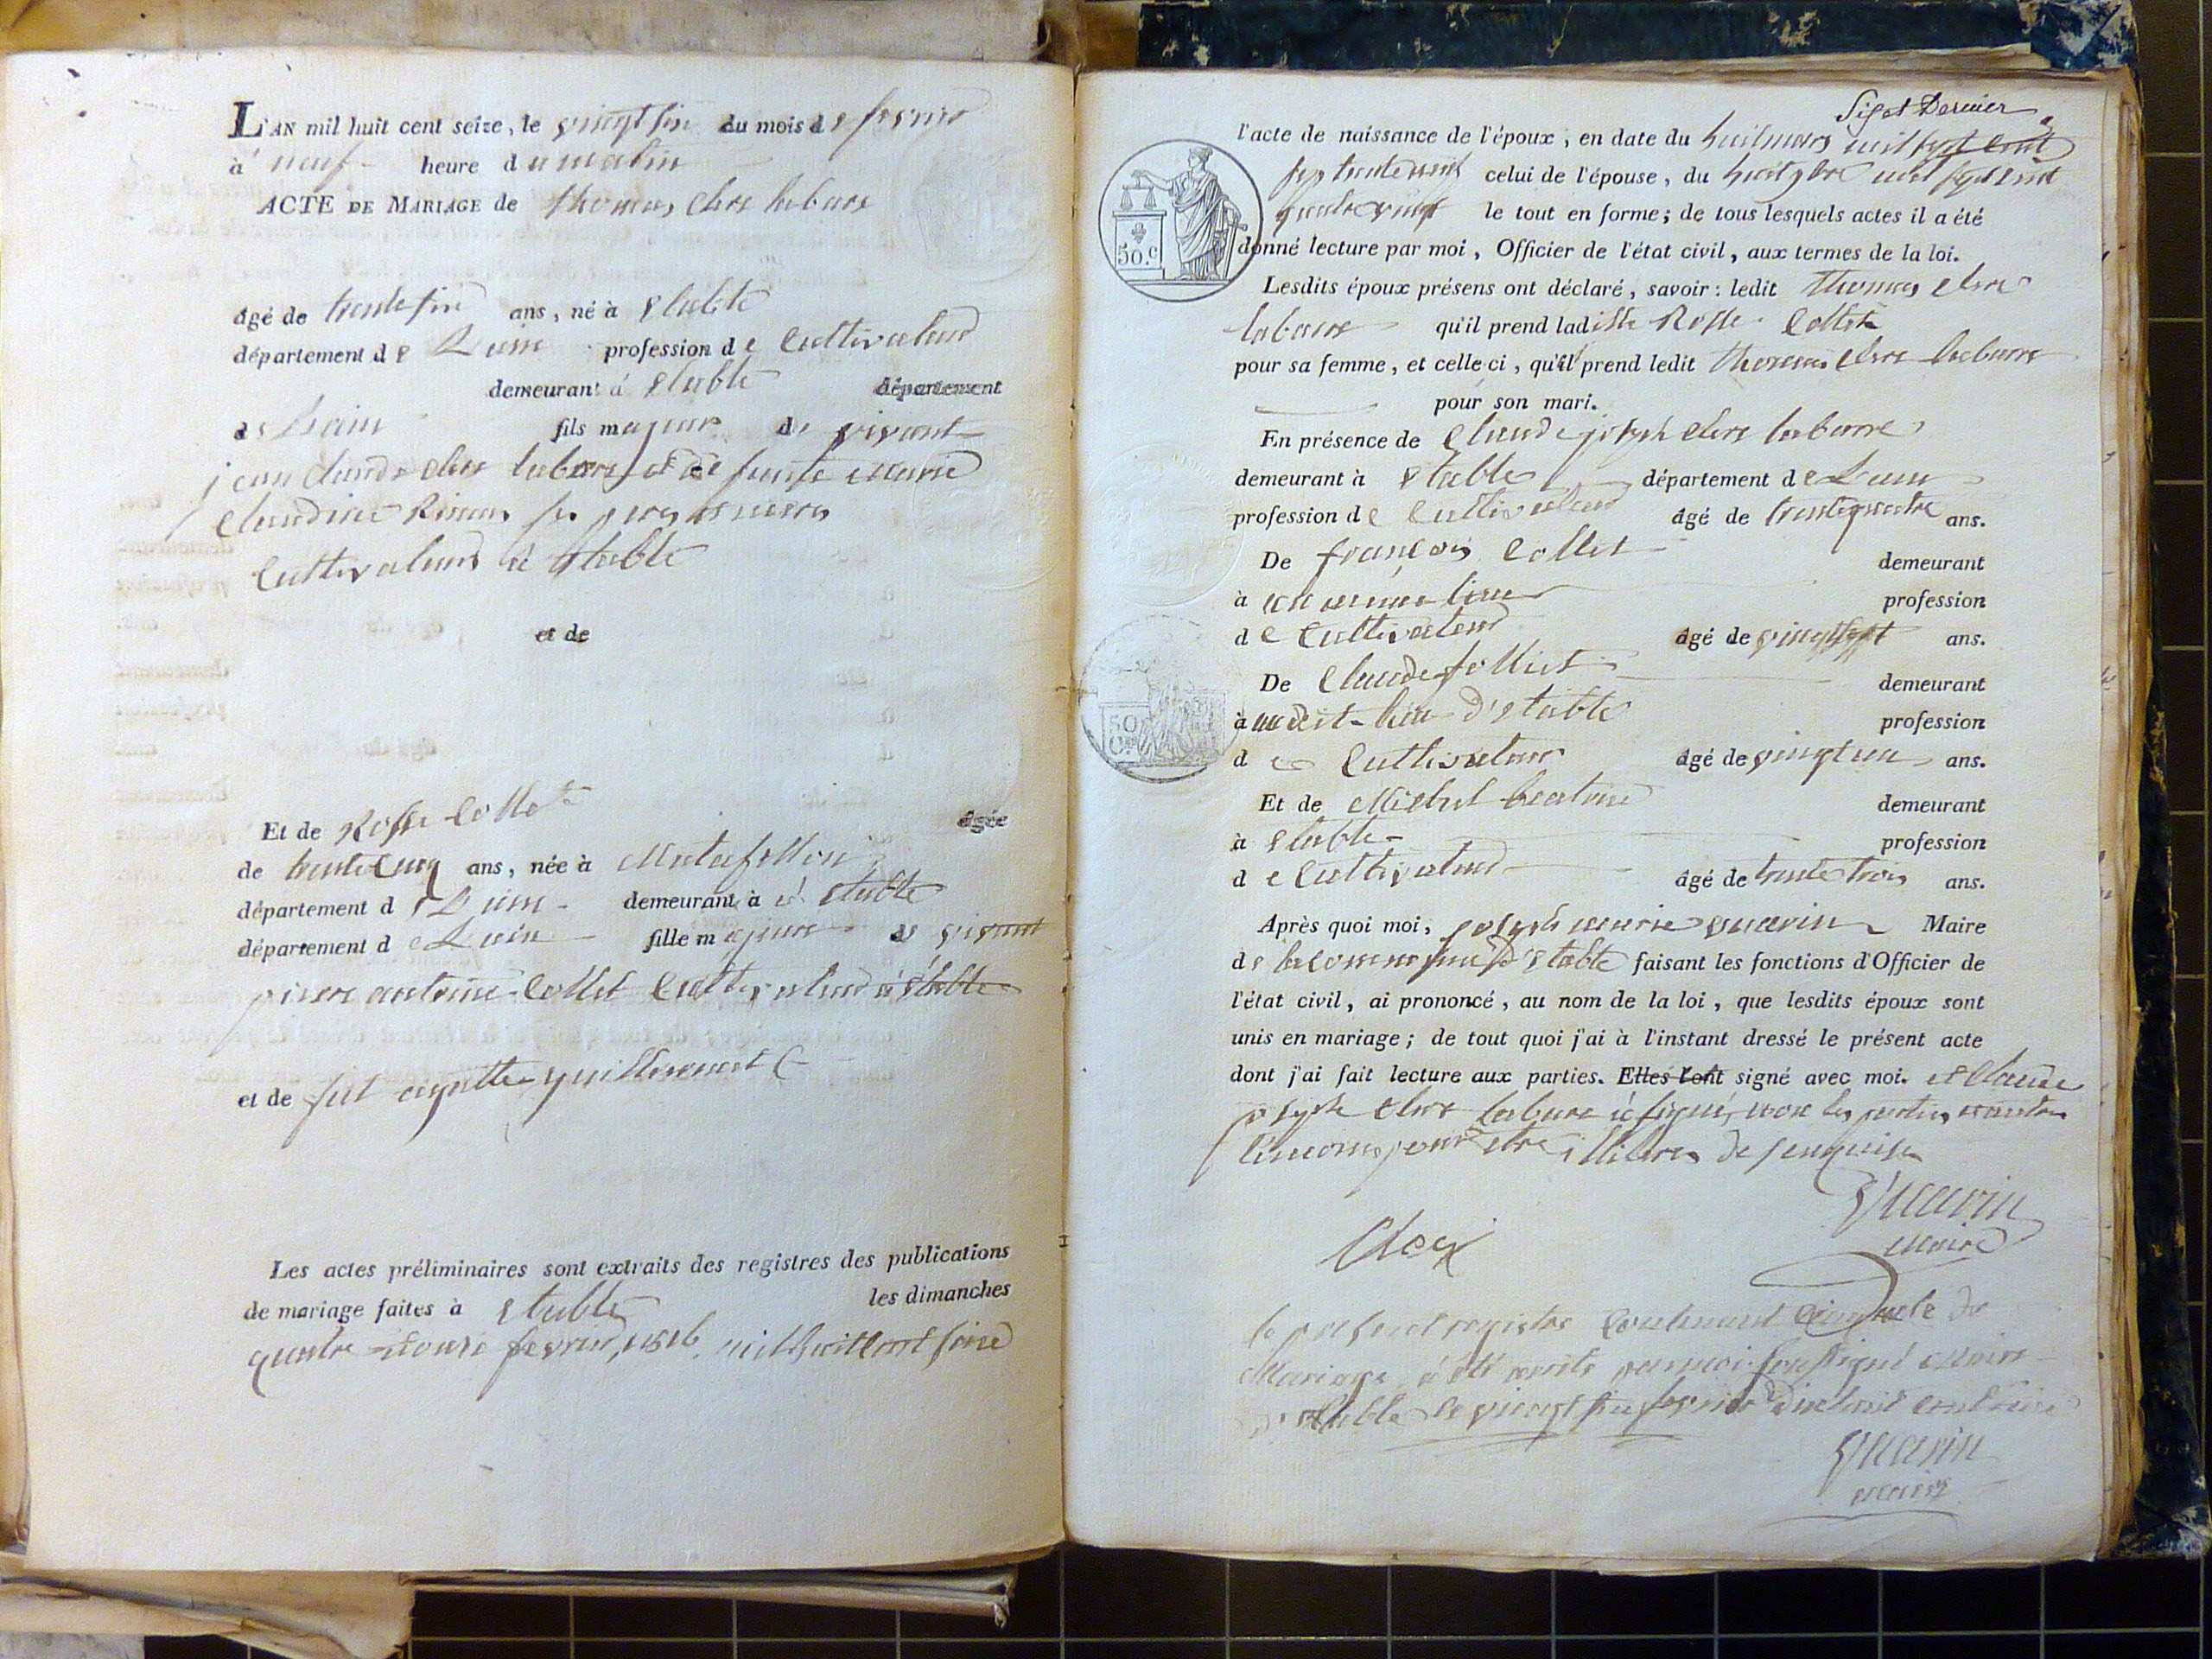 L'AN mil huit cent seize, le vingt six du mois de fevrier
à neuf heure du matin
ACTE DE MARIAGE de thomas clerc labarre
âgé de trente six ans, né à Etable
département de Lain profession de Cultivateur
demeurant à Etable département
de Lain fils majeur de vivant
jean claude clerc labarre et de funte marie
claudine ses pere et mere
Cultivateurs à Etable
et de
Et de Rosse Collet âgée
de trente cinq ans, née à Matafellon
département de Lain demeurant à Etable
département de Lain fille majeure de vivant
pierre antoine Collet Cultivateur à Etable
et de guillermet
Les actes préliminaires sont extraits des registres des publications
de mariage faites à Etable les dimanches
quatre fevrier, 1816 mil huit cent seize
Sixet Dernier
l'acte de naissance de l'époux, en date du huit mars mil sept cent
celui de l'épouse, du mil sept cent
quatre vingt le tout en forme; de tous lesquels actes il a été
50.c
donné lecture par moi, Officier de l'état civil, aux termes de la loi.
Lesdits époux présens ont déclaré, savoir: ledit thomas clerc
labarre qu'il prend laditte Rosse Collet
pour sa femme, et celle-ci, qu'il prend ledit thomas clerc labarre
pour son mari.
En présence de Claude joseph clerc labarre
demeurant à Etable département de Lain
profession de Cultivateur âgé de trente quatre ans.
De françois Collet demeurant
à lieu profession
de Cultivateur âgé de vingt sept ans.
De Claude folliet demeurant
à udit lieu d'Etable profession
50
de Cultivateur âgé de vingt un ans.
Et de Michel demeurant
à Etable profession
de Cultivateur âgé de trente trois ans.
Après quoi moi, joseph marie Maire
de la commune d'Etable faisant les fonctions d'Officier de
l'état civil, ai prononcé, au nom de la loi, que lesdits époux sont
unis en mariage; de tout quoi j'ai à l'instant dressé le présent acte
dont j'ai fait lecture aux parties. Elles l'ont signé avec moi. et Claude
joseph clerc labarre à signé, non les parties
pour etre illiteres de
maire
le present registre Contenant de
Mariage à été par moi soussigné maire
d'Etable le vingt six fevrier
maire